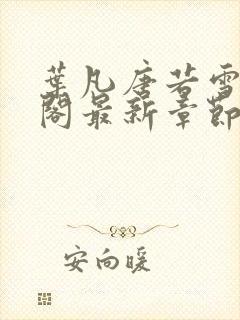 葉凡唐若雪
閣最新章節
安向暖